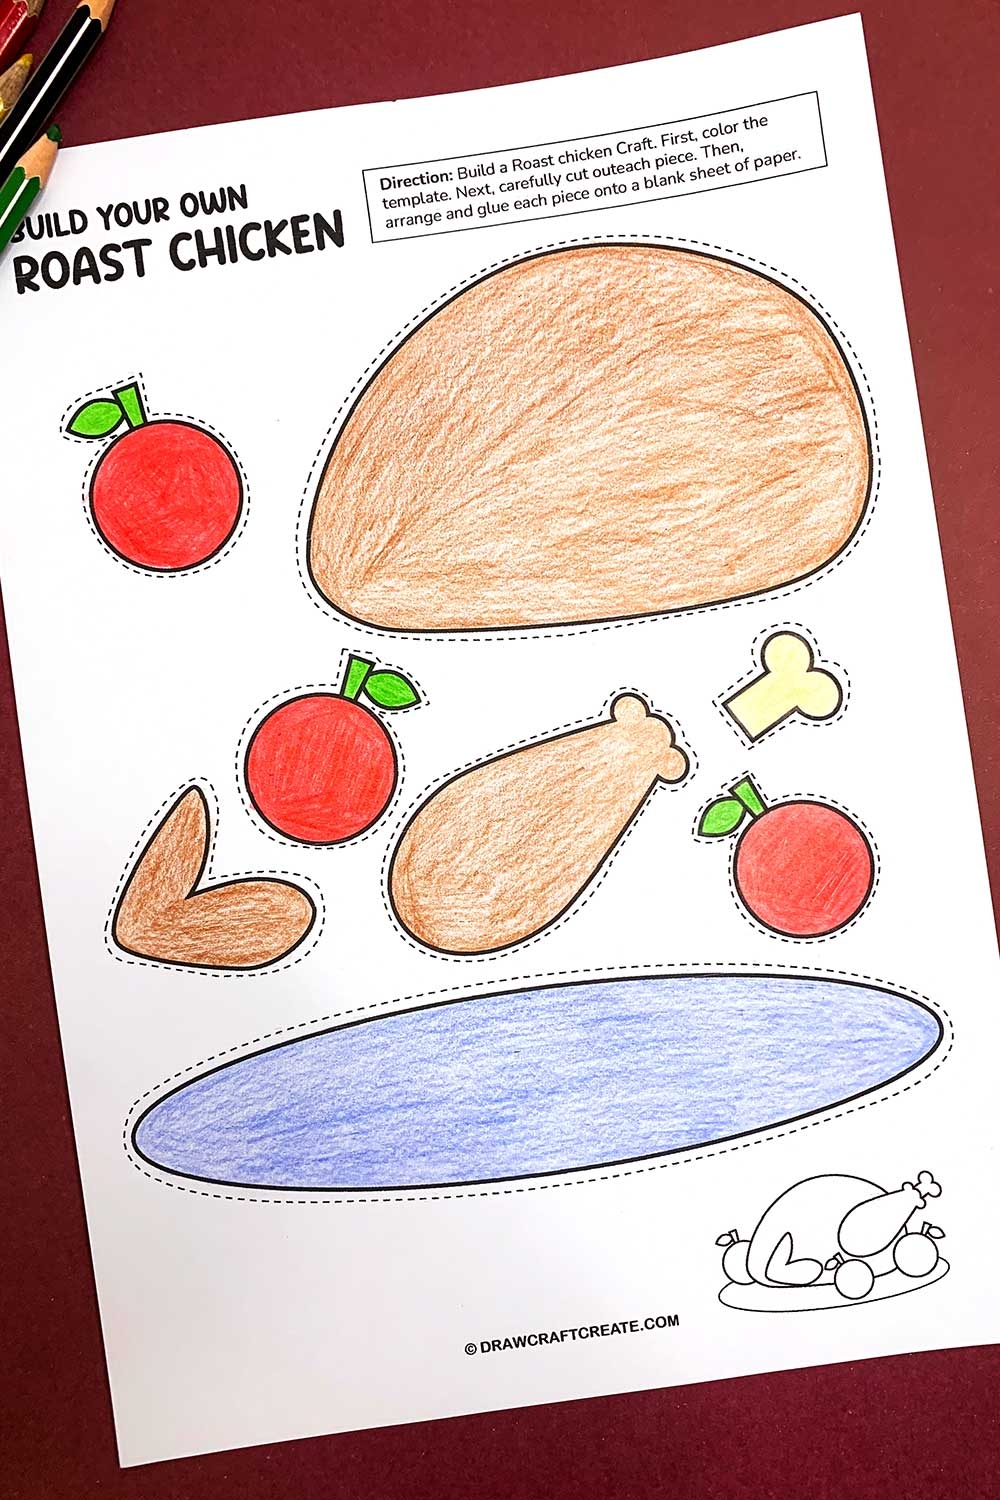 BUILD YOUR OWN
ROAST CHICKEN
Direction: Build a Roast chicken Craft. First, color the
template. Next, carefully cut outeach piece. Then,
arrange and glue each piece onto a blank sheet of paper.
© DRAWCRAFTCREATE.COM